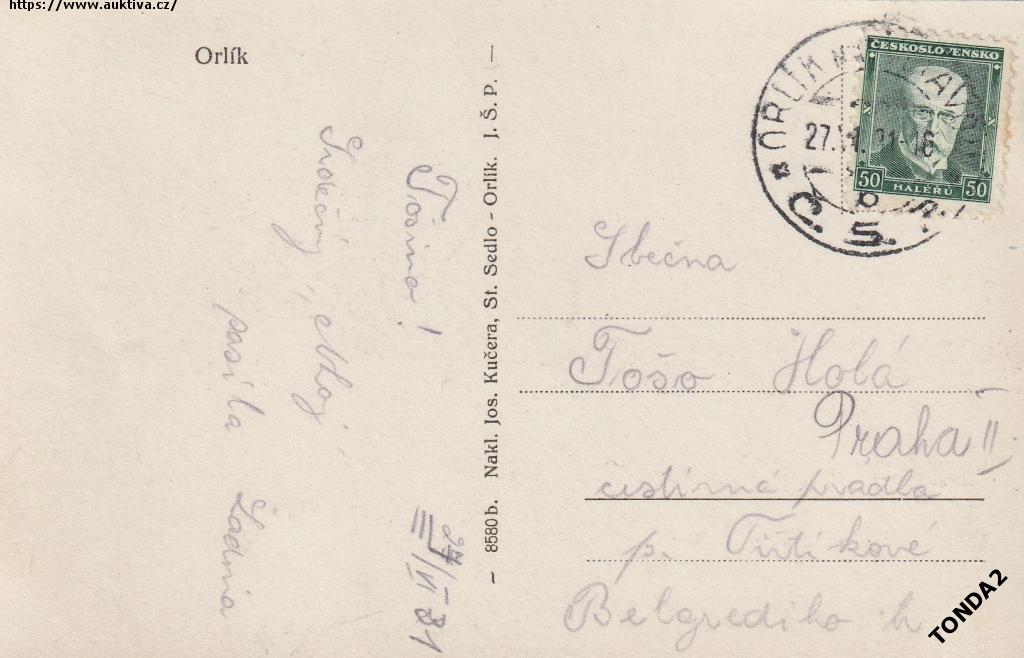 https://www.auktiva.cz/
Orlík
Tošino!
Srdečný
posílá
27/VI 31
– 8580 b. Nakl. Jos. Kučera, St. Sedlo - Orlík. J. Š. P. –
ČESKOSLOVENSKO
50 HALÉŘŮ 50
ORLÍK
27.VI.31-16
Č. S.
b
Tošo Holá
Praha II
čistírna prádla
Belgrediho
TONDA2